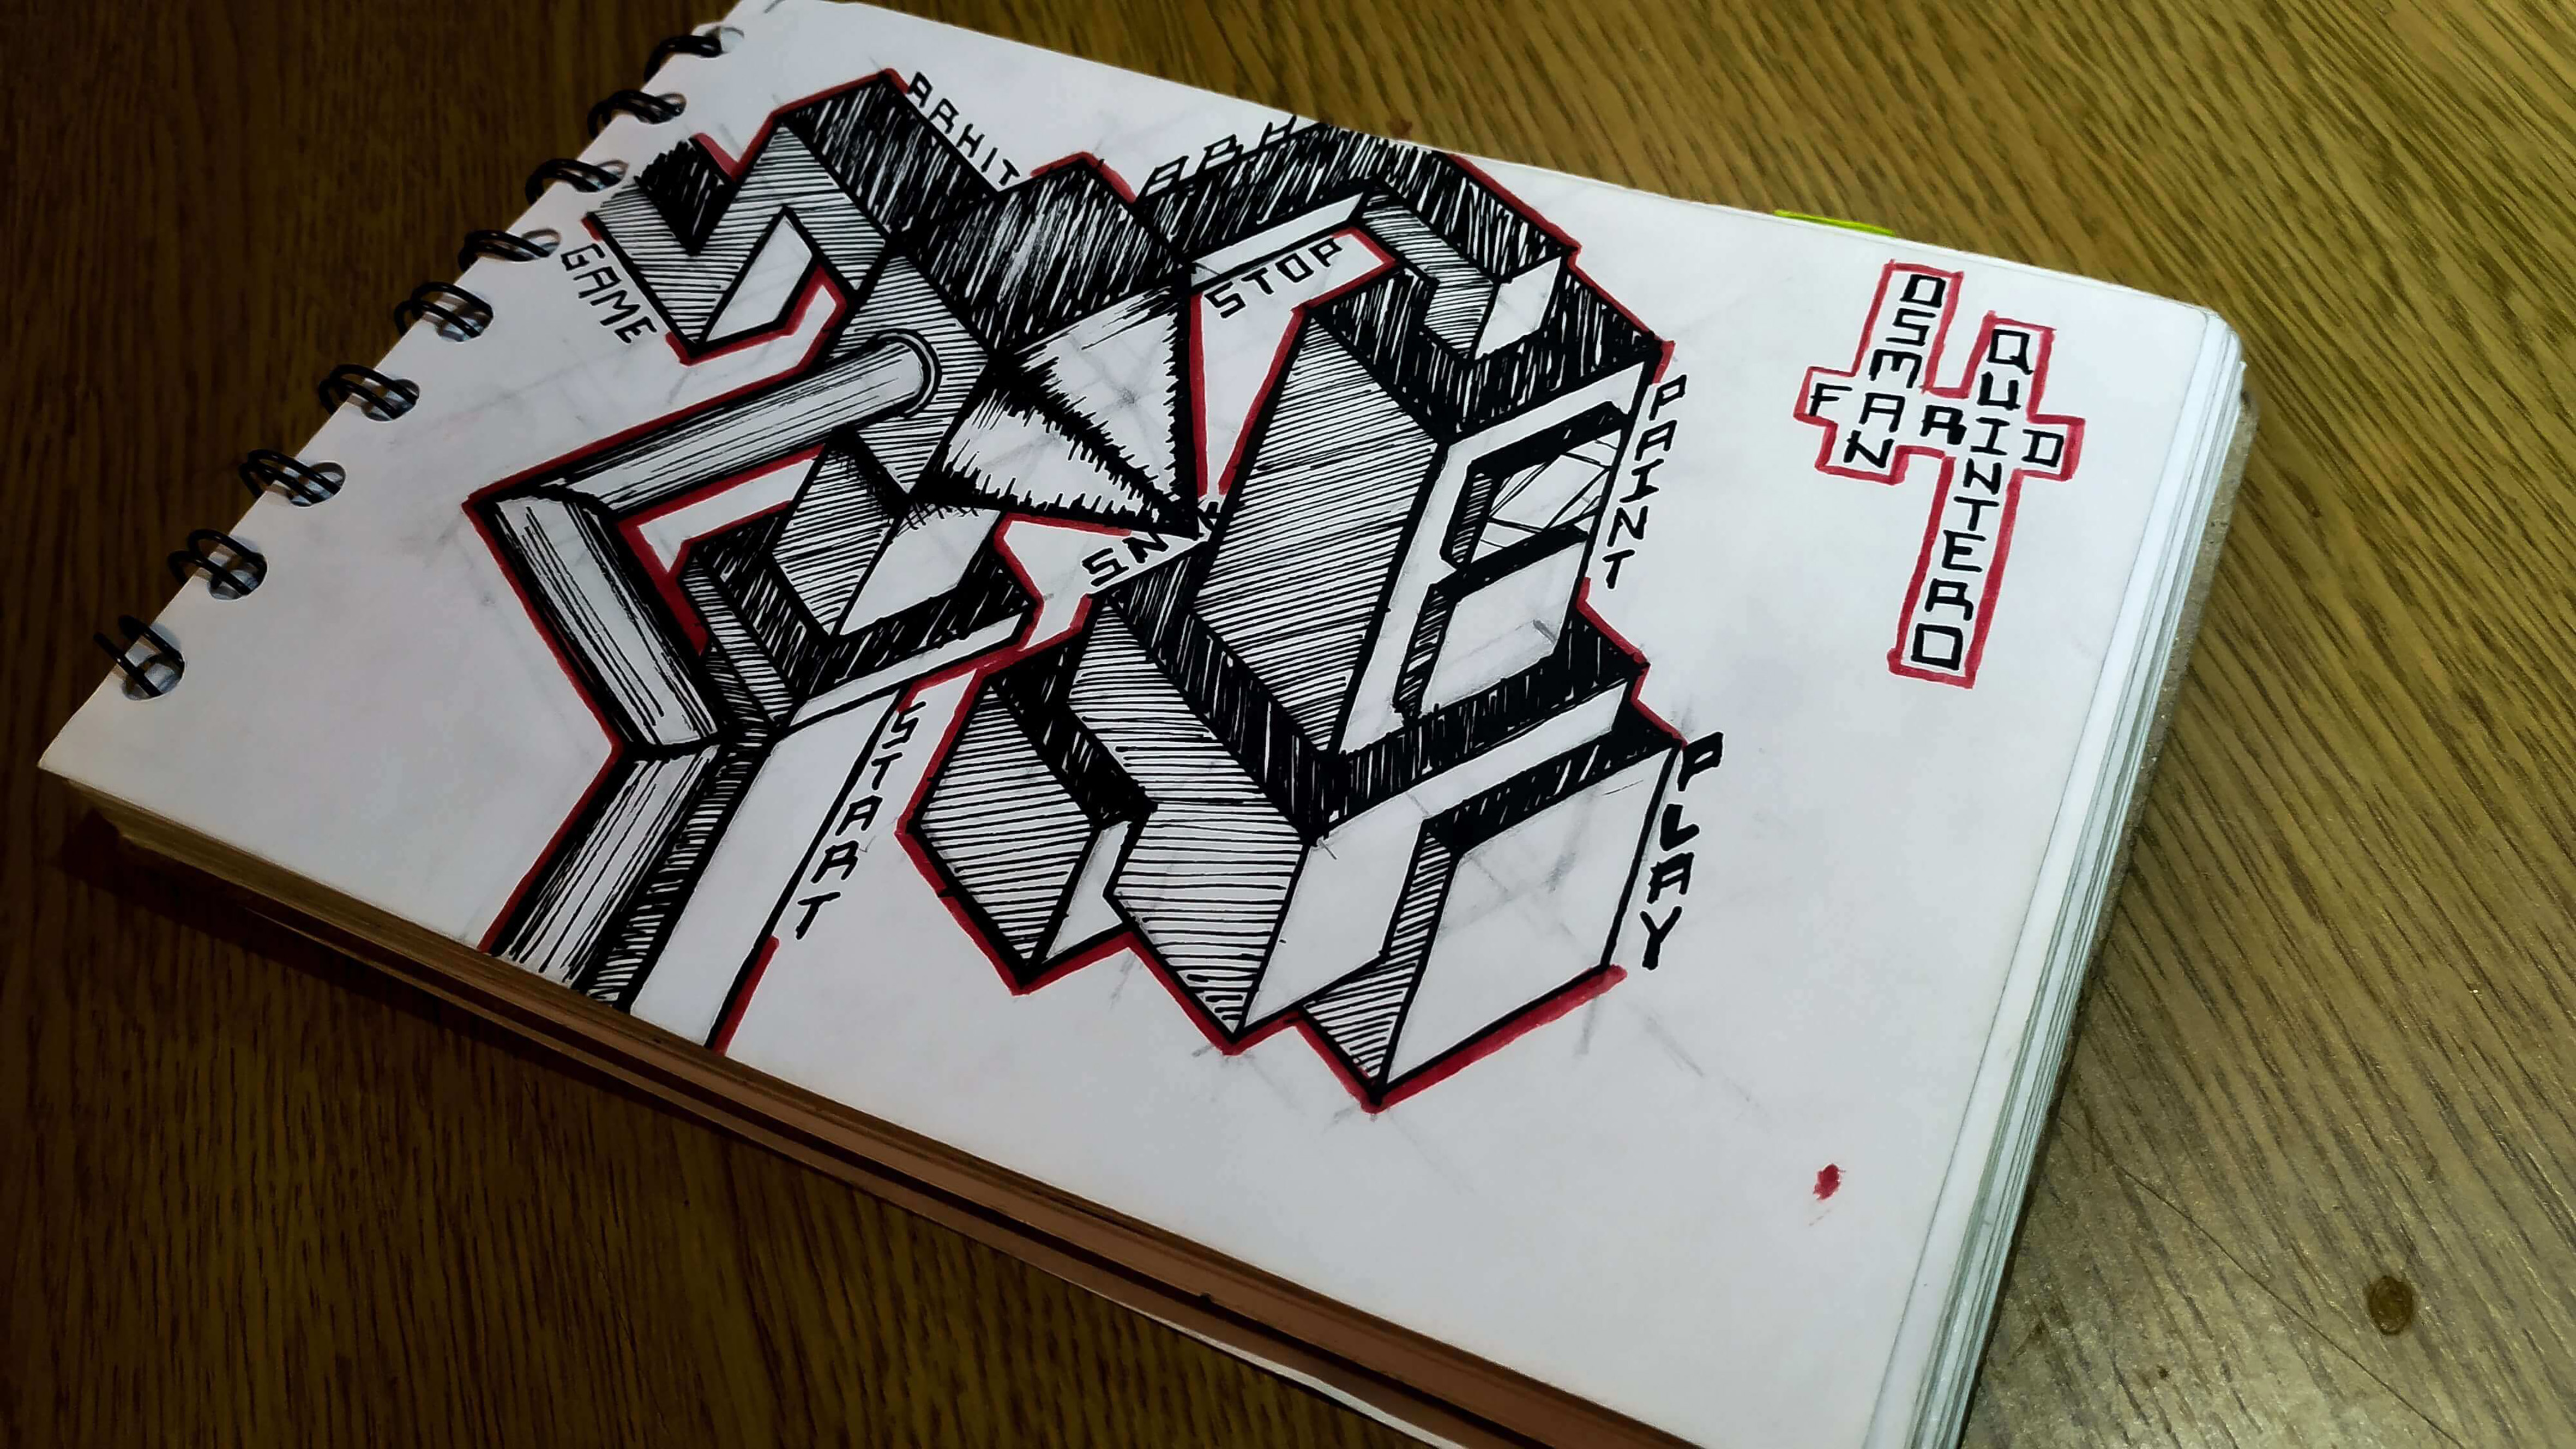 ARHIT
ARH
GAME
STOP
PAINT
SNK
START
PLAY
OSMAN
FARID
QUINTERO